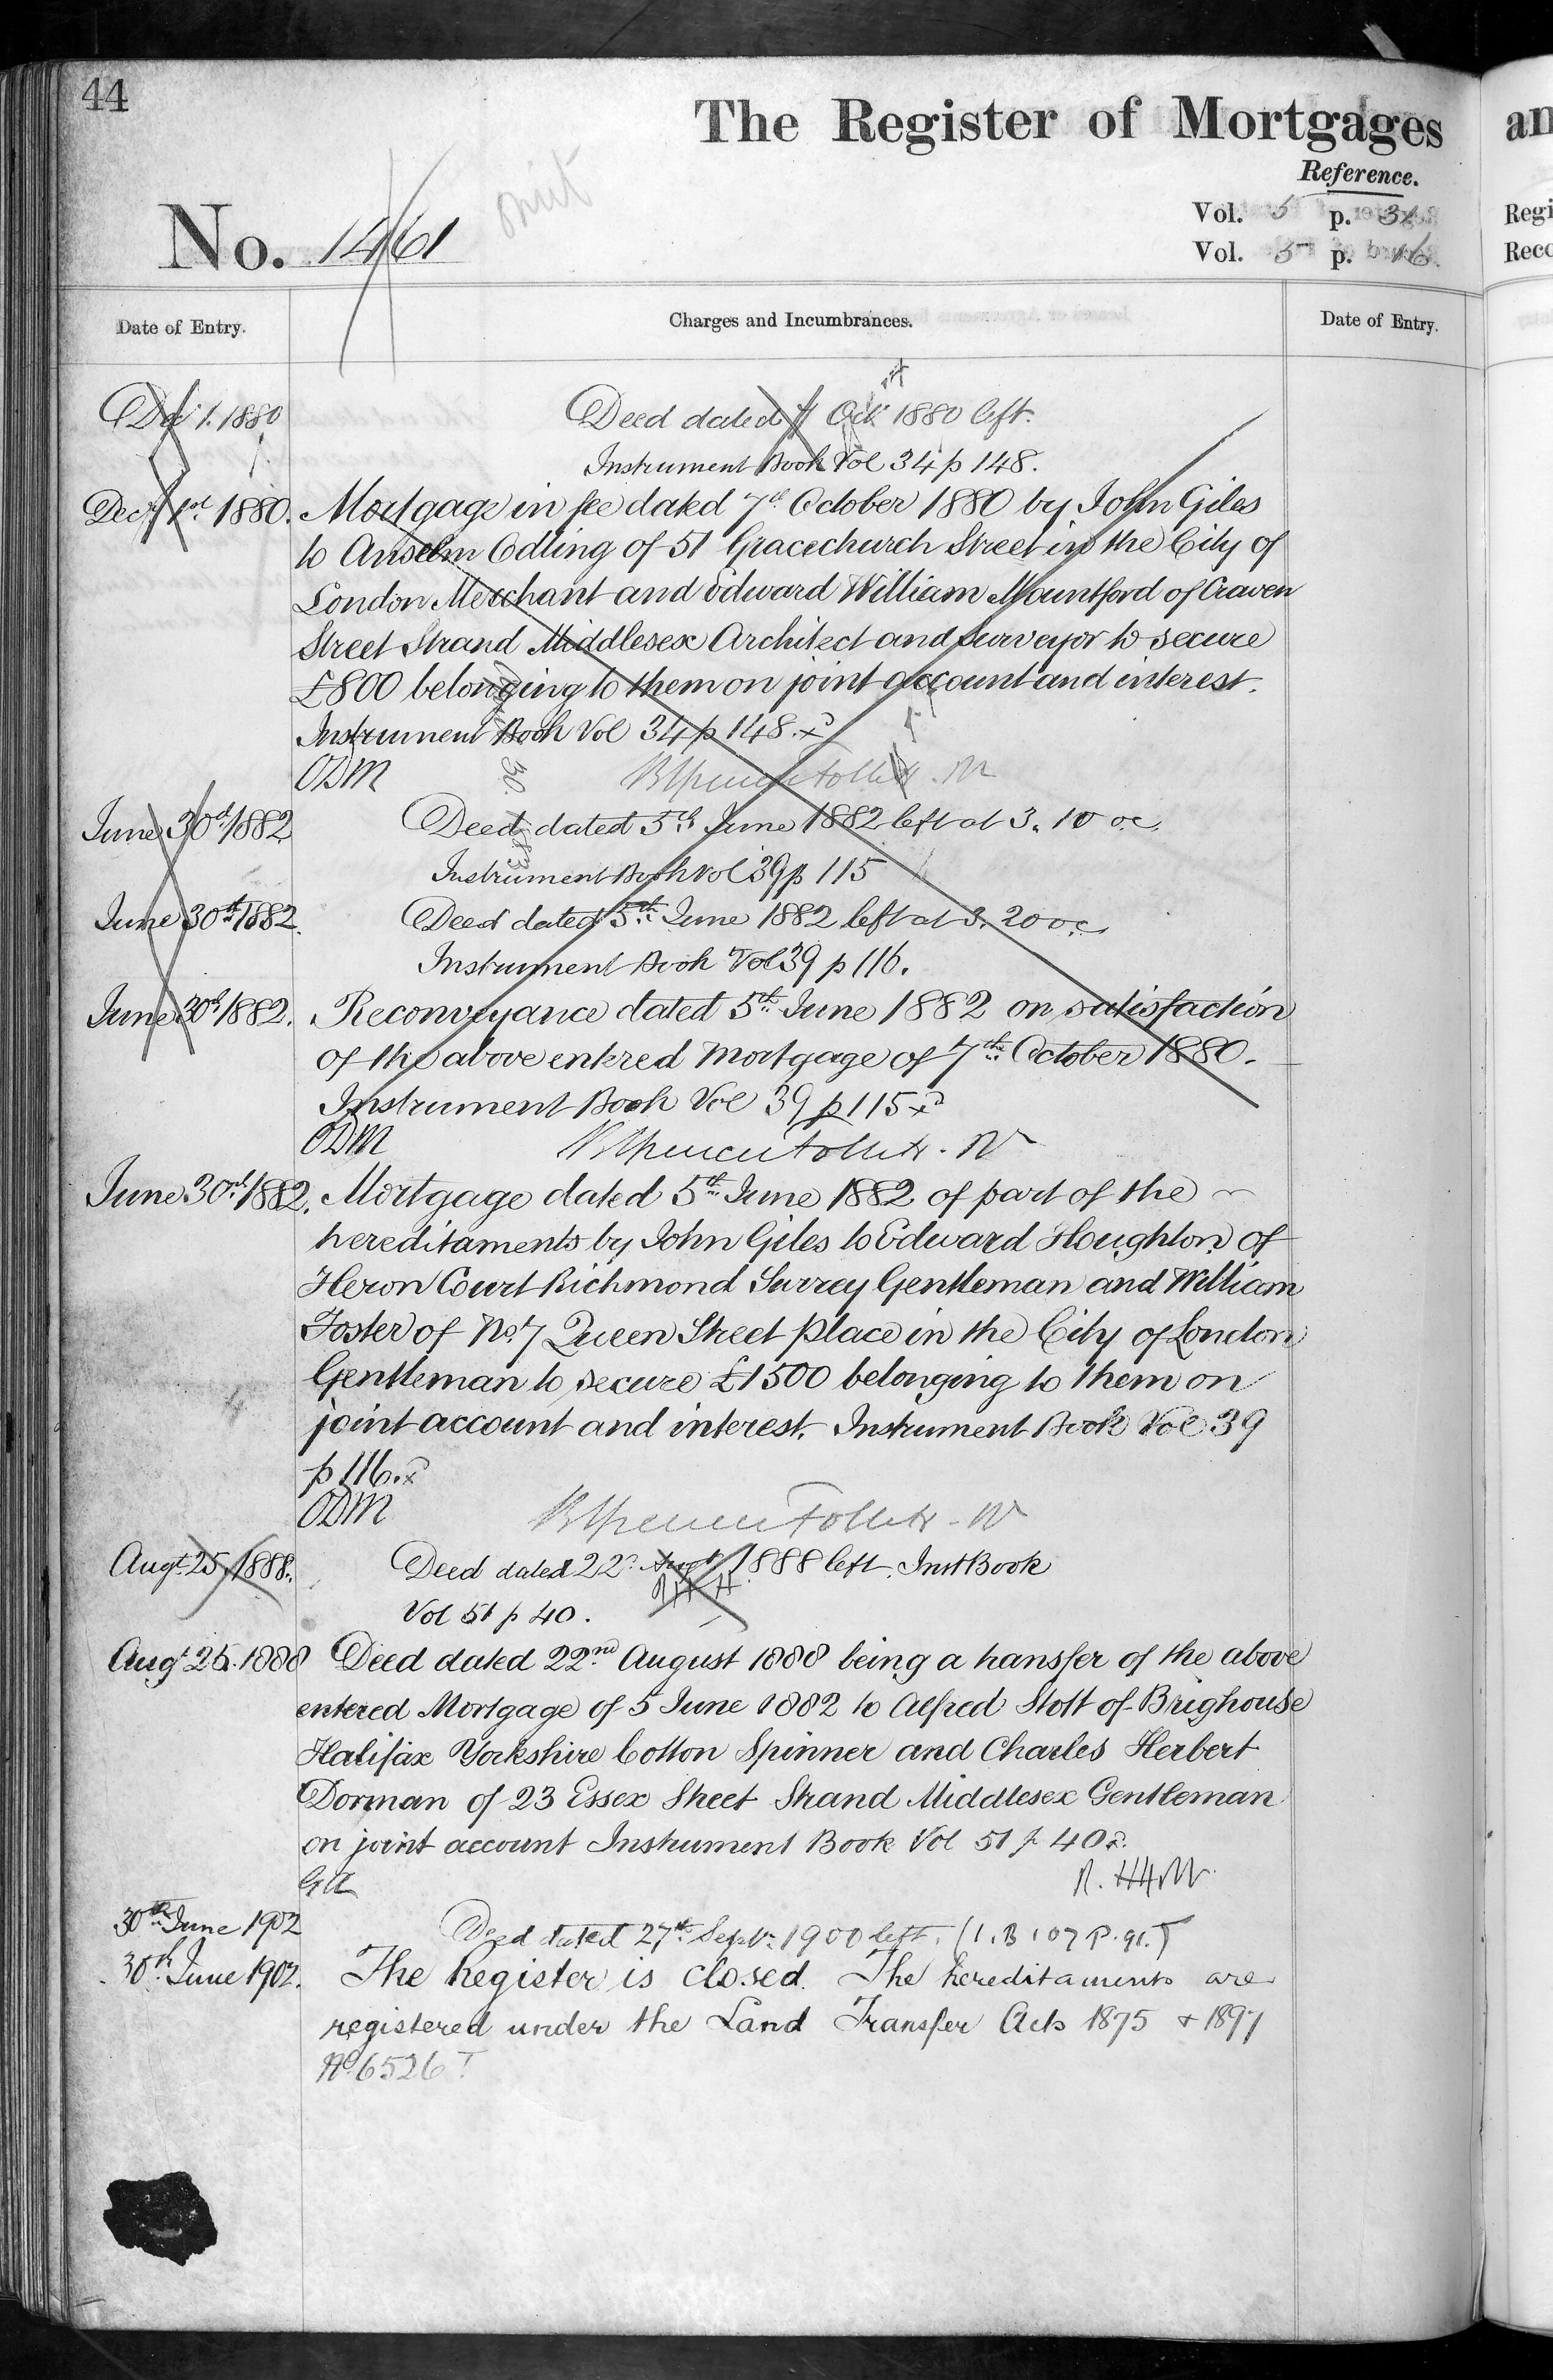 44
The Register of Mortgages
an
Reference.
No. 1461
omit
Vol. 5 p. 31
Regi
Vol. 5 p. 16
Reco
Date of Entry.
Charges and Incumbrances.
Date of Entry.
Dec 1. 1880
Deed dated 7 Oct 1880 left.
Instrument Book Vol 34 p 148.
Decr 1st 1880.
Mortgage in fee dated 7th October 1880 by John Giles
to Anselm Odling of 51 Gracechurch Street in the City of
London Merchant and Edward William Mountford of Craven
Street Strand Middlesex Architect and Surveyor to secure
£800 belonging to them on joint account and interest.
Instrument Book Vol 34 p 148.
ODM
June 30th 1882
Deed dated 5th June 1882 left at 3.10 oc.
Instrument Book Vol 39 p 115
June 30th 1882.
Deed dated 5th June 1882 left at 3.20 oc.
Instrument Book Vol 39 p 116.
June 30th 1882.
Reconveyance dated 5th June 1882 on satisfaction
of the above entered Mortgage of 7th October 1880.
Instrument Book Vol 39 p 115
ODM
June 30th 1882.
Mortgage dated 5th June 1882 of part of the
hereditaments by John Giles to Edward Houghton of
Heron Court Richmond Surrey Gentleman and William
Foster of No. 7 Queen Street Place in the City of London
Gentleman to secure £1500 belonging to them on
joint account and interest. Instrument Book Vol 39
p 116.
ODM
Augt 25 1888.
Deed dated 22 Augt 1888 left. Inst Book
Vol 51 p 40.
Augt 25. 1888
Deed dated 22nd August 1888 being a transfer of the above
entered Mortgage of 5 June 1882 to Alfred Stott of Brighouse
Halifax Yorkshire Cotton Spinner and Charles Herbert
Dorman of 23 Essex Street Strand Middlesex Gentleman
on joint account Instrument Book Vol 51 p 40
30th June 1902
Deed dated 27th Septr 1900 left. (I.B 107 P. 91.)
30th June 1902.
The Register is closed. The hereditaments are
registered under the Land Transfer Acts 1875 & 1897
No 6526